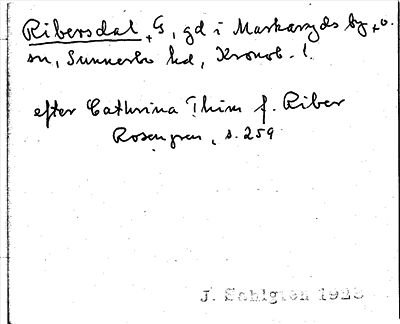 Ribersdal + G, gd i Markaryds by + o.
sn, Sunnerbo hd, Kronob. l.
efter Cathrina Thim f. Riber
Rosengren, s. 259
J. Sahlgren 1923